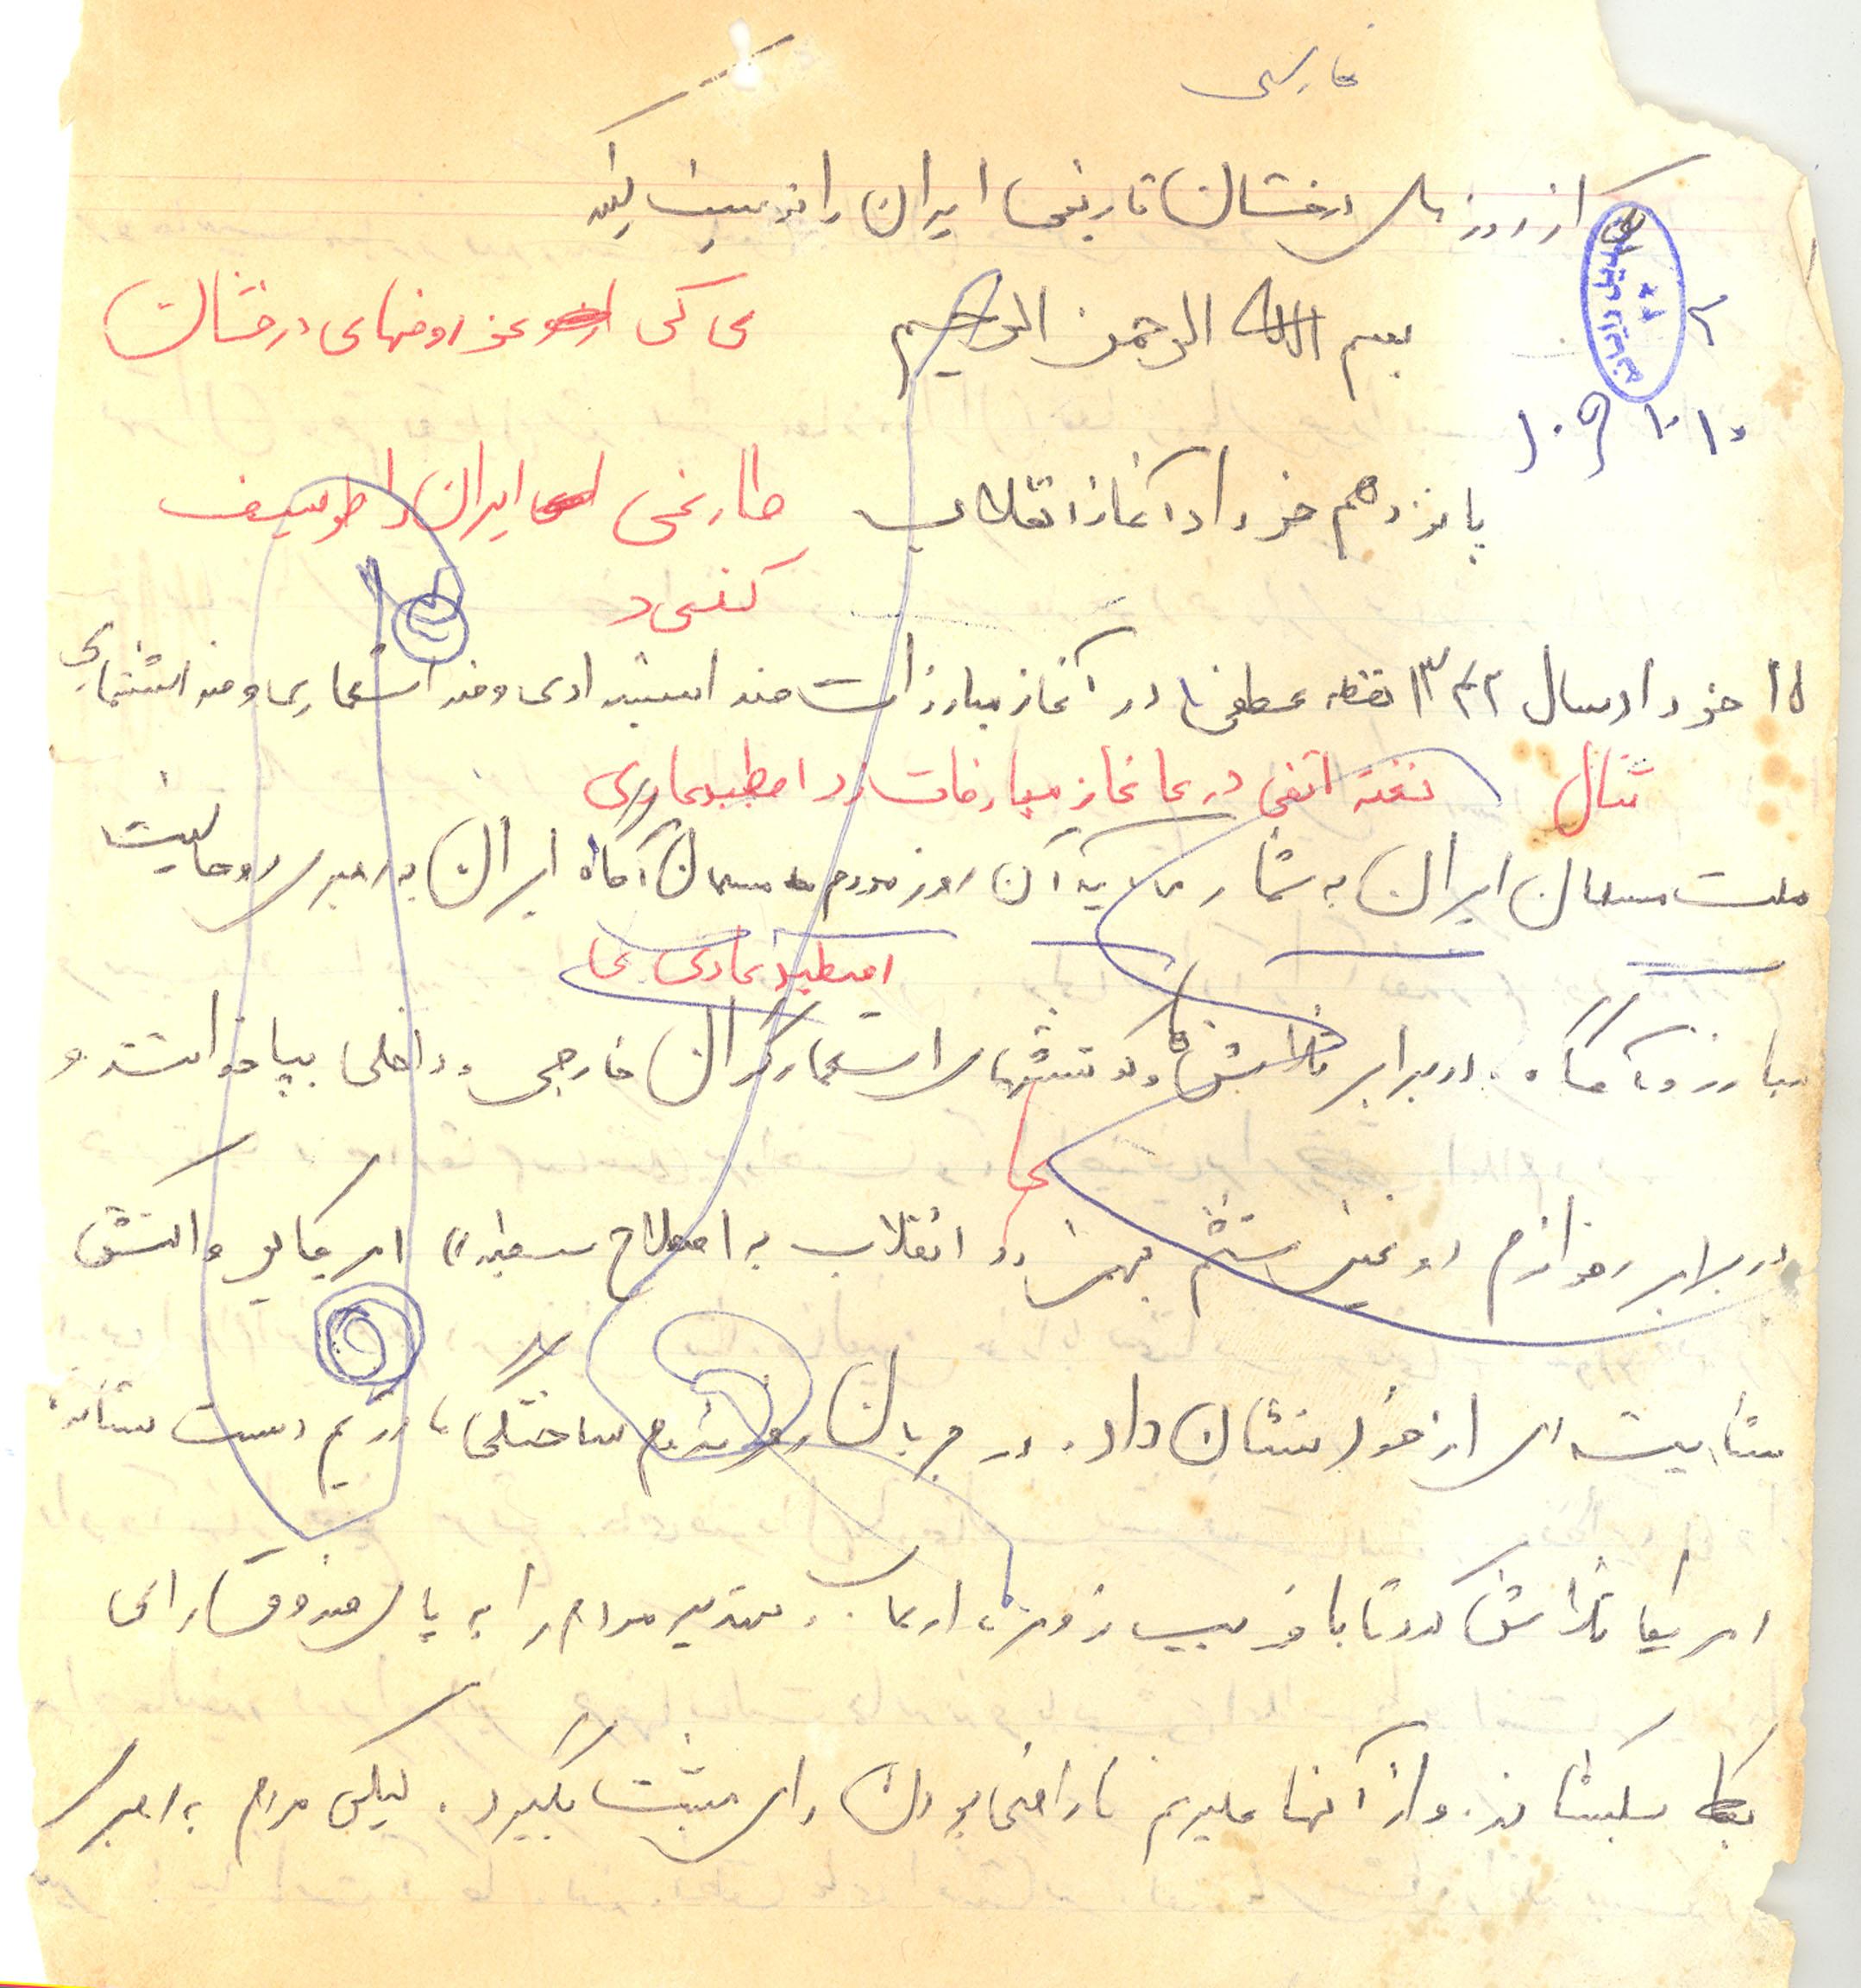 فارسی
از روزهای درخشان تاریخی ایران را توصیف کنید
بسم الله الرحمن الرحیم
عی کی عز روضهای درخشان
پانزدهم خرداد آغاز انقلاب
طارخی ایران را طوسیف
کنی د
۱۵ خرداد سال ۱۳۴۲ نقطه عطفی در آغاز مبارزات ضد استبدادی و ضد استعماری و ضد استثماری
ثال نغته اتفی در عاغاز مبارضات زد اصطبدعاری
ملت مسلمان ایران به شمار می آید آن روز مردم مسلمان آگاه ایران به رهبری روحانیت
اصطبدعادی عا
مبارز و آگاه در برابر تلاش و کوششهای استعمارگران خارجی و داخلی بپا خواستند و
عا
در برابر رفراندم دروغین ششم بهمن در انقلاب به اصلاح سفید)) امریکایی واکنش
شایسته ای از خود نشان داد. در جریان رفراندم ساختگی رژیم دست نشانده
امریکا تلاش کرد تا با فریب زور ارعاب و تهدید مردم را به پای صندوق رای
بکشاند. و از آنها علیرغم ناراضی بودن رای مثبت بگیرد. لیکن مردم به رهبری